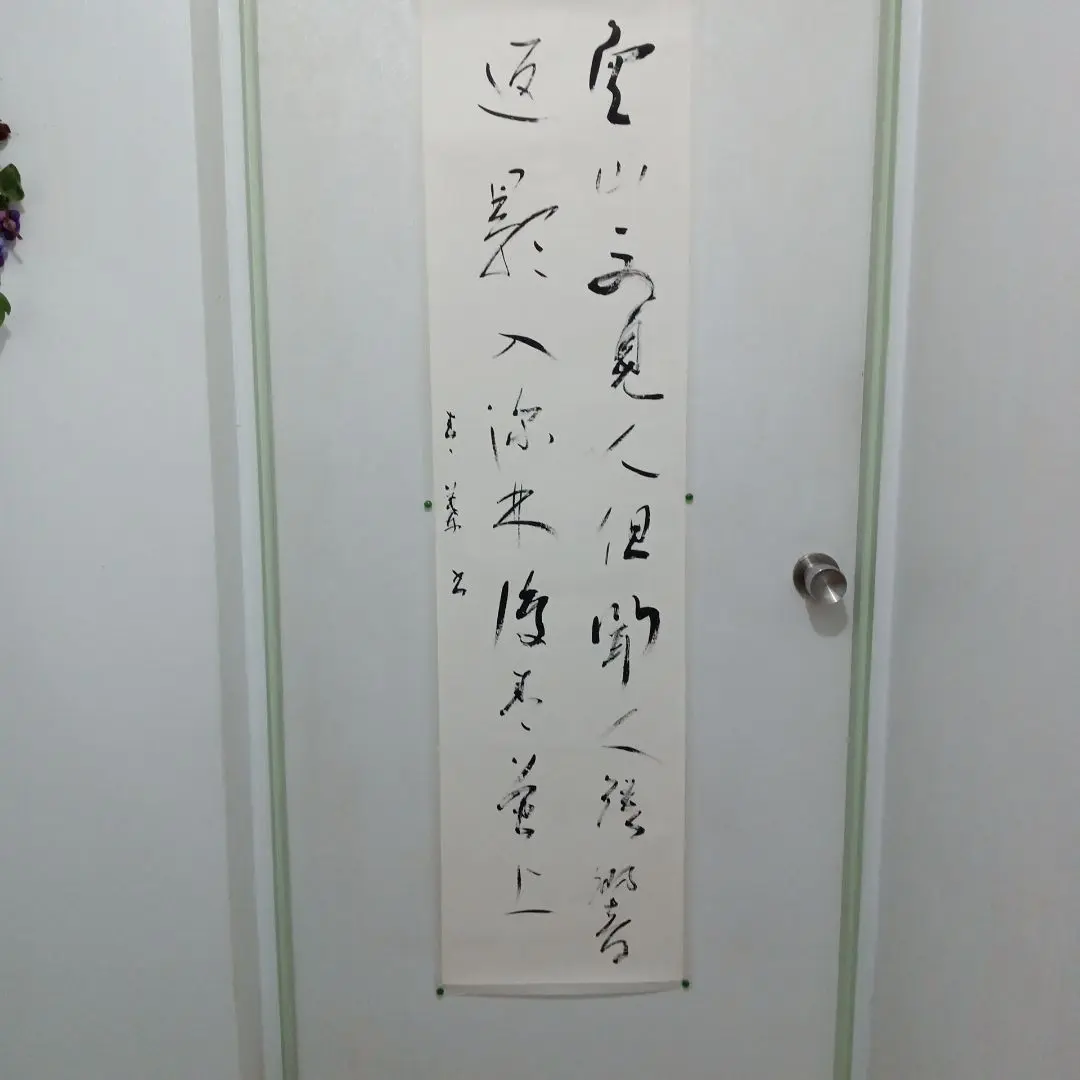 空山不見人但聞人語響
返影入深林復青苔上
書